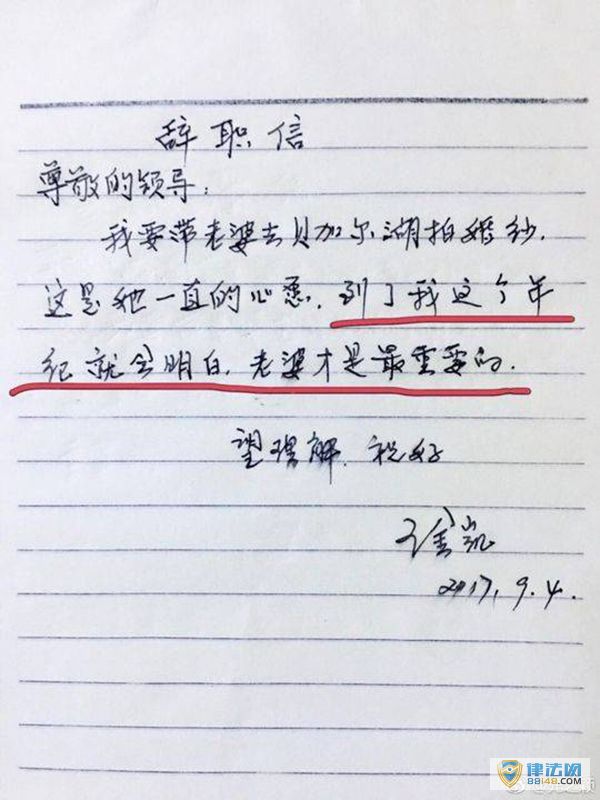 辞职信
尊敬的领导:
我要带老婆去贝加尔湖拍婚纱.
这是她一直的心愿,到了我这个年
纪就会明白,老婆才是最重要的.
望理解,祝好
凯
2017.9.4.
律法网
88148.com